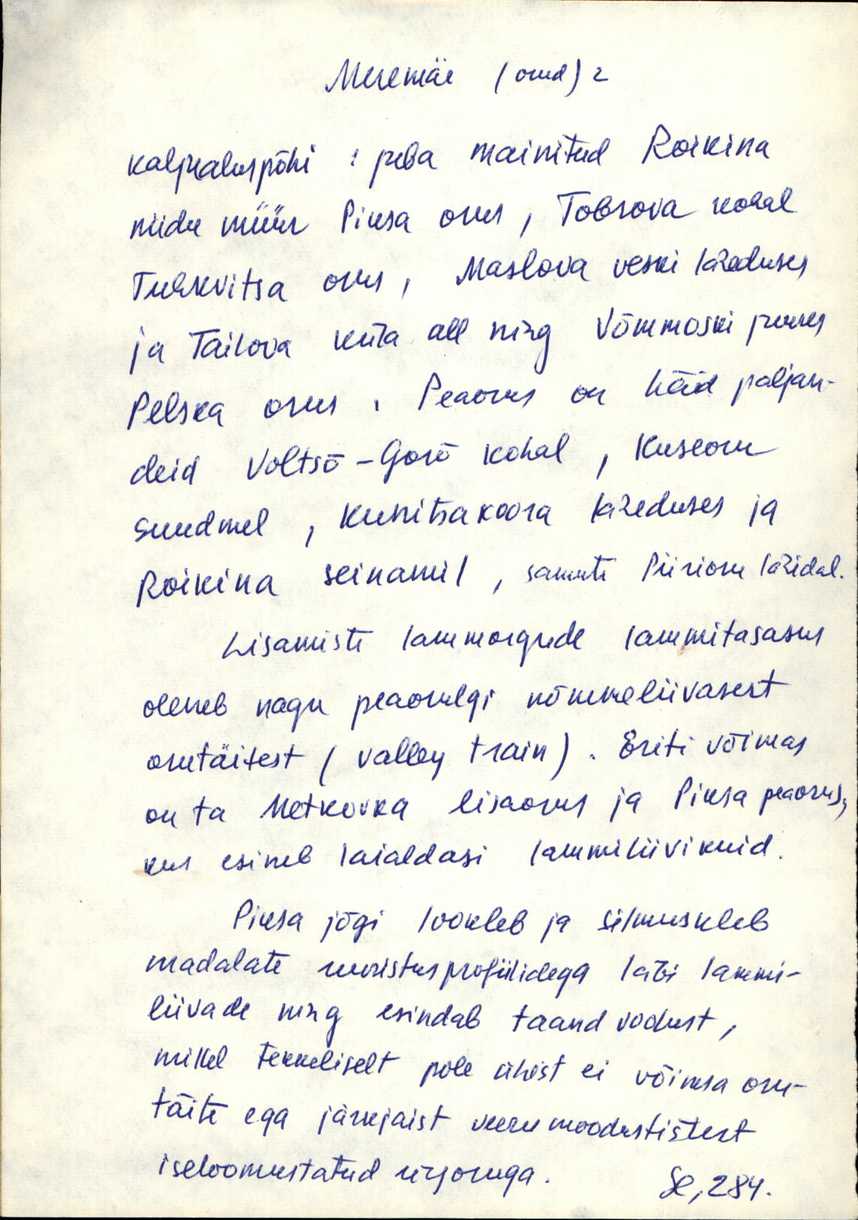 Meremäe (orud) 2
kaljualuspõhi : juba mainitud Roikina
niidu müür Piusa orus, Tobrova kohal
Tuhkvitsa orus, Maslova veski läheduses
ja Tailova küla all ning Võmmoski juures
Pelska orus. Peaorus on häid paljan-
deid Voltsõ-Gorõ kohal, Kuseoru
suudmel, Kunitsakoora läheduses ja
Roikina seinamil, samuti Piirioru lähidal.
Lisamisti lammorgude lammitasasus
oleneb nagu peaorulgi nõmmeliivasest
orutäitest (valley train). Eriti võimas
on ta Metkovka lisaorus ja Piusa peaorus,
kus esineb laialdasi lammiliivikuid.
Piusa jõgi lookleb ja silmuskleb
madalate uuristusprofiilidega läbi lammi-
liivade ning esindab taandvoolust,
millel tekkeliselt pole ühist ei võimsa oru-
täite ega järsejaist veerumoodustistest
iseloomustatud ürgoruga.
Se, 284.